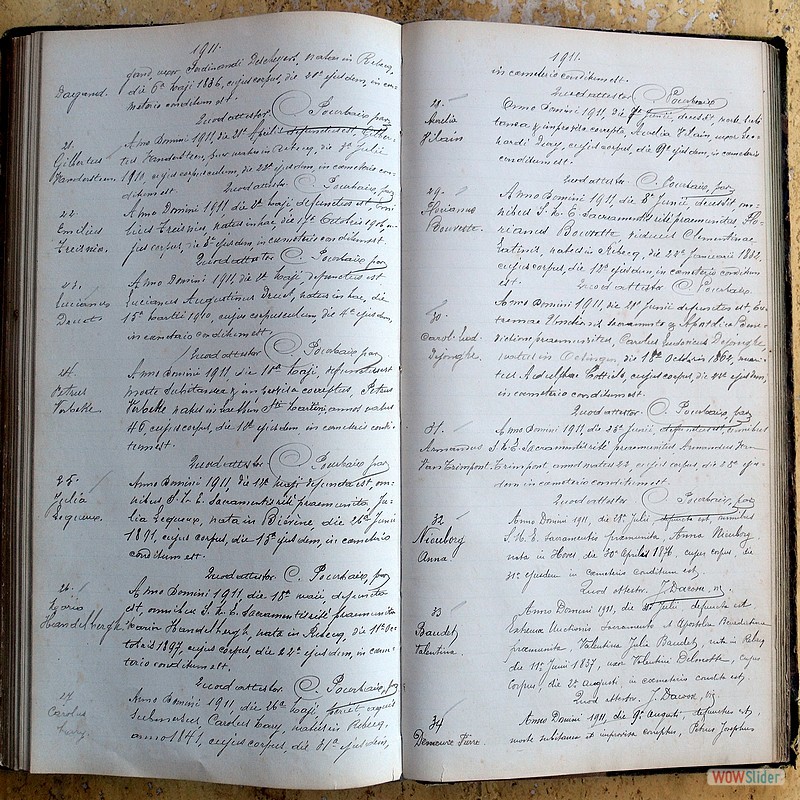 1911.
Daegand.
die 6ª Maji 1836, cujus corpus, die 21ª ejusdem, in coe-
meterio conditum est.
Quod attestor C. Pourbaix, par
21.
Gilbertus
Vandersteen,
Anno Domini 1911, die 21ª Aprilis defunctus est, Gilber-
tus Vandersteen, natus in Rebecq, die Julii
1910, cujus corpusculum, die 23ª ejusdem, in coemeterio con-
ditum est. Quod attestor C. Pourbaix, par
22.
Emilius
Anno Domini 1911 die 2ª Maji defunctus est, Emi-
lius natus in hac, die 17ª Octobris
jus corpus, die ejusdem, in coemeterio conditum est.
Quod attestor C. Pourbaix par
23.
Lucianus
Anno Domini 1911, die Maji, defunctus est
Lucianus Augustinus natus in hac, die
15ª Martii 1910, cujus corpusculum, die 4ª ejusdem,
in coemeterio conditum est.
Quod attestor C. Pourbaix, par
24.
Petrus
Verbeke
Anno Domini 1911, die 11ª Maji, defunctus est
morte subitanea & improvisa correptus, Petrus
Verbeke natus in Sti Martini annos natus
46, cujus corpus, die ejusdem, in coemeterio condi-
tum est.
Quod attestor C. Pourbaix par
25.
Julia
Lequeux.
Anno Domini 1911, die Maji defuncta est, om-
nibus S. M. E. Sacramentis rite praemunita, Ju-
lia Lequeux, nata in Biévène, die 26ª Junii
1891, cujus corpus, die 15ª ejusdem, in coemeterio
conditum est.
Quod attestor C. Pourbaix, par
26.
Maria
Handelbergh.
Anno Domini 1911, die 18ª Maji, defuncta
est, omnibus S. M. E. Sacramentis rite praemunita
Maria Handelbergh, nata in Rebecq, die 11ª Oc-
tobris 1897, cujus corpus, die 22ª ejusdem, in coeme-
terio conditum est.
Quod attestor C. Pourbaix, par
27.
Carolus
Anno Domini 1911, die 26ª Maji, aquis
submersus, Carolus natus in Rebecq,
anno 1841, cujus corpus, die 31ª ejusdem,
1911.
in coemeterio conditum est.
Quod attestor C. Pourbaix
28.
Aurelia
Vilain
Anno Domini 1911, die Junii, decessit, morte subi-
tanea & improvisa correpta, Aurelia Vilain, uxor
cujus corpus, die 9ª ejusdem, in coemeterio
conditum est.
Quod attestor C. Pourbaix, par
29.
Florianus
Bouvette.
Anno Domini 1911, die 8ª Junii, decessit om-
nibus S. M. E. Sacramentis rite praemunitus, Flo-
rianus Bouvette, viduus Clementinae
natus in Rebecq, die 22ª Januarii 1832,
cujus corpus, die 12ª ejusdem, in coemeterio conditum
est. Quod attestor C. Pourbaix.
30.
Carol. Lud.
Dejonghe.
Anno Domini 1911, die 21ª Junii defunctus est, Ex-
tremae Unctionis sacramento & Apostolica Bene-
dictione praemunitus, Carolus Ludovicus Dejonghe
natus in die 18ª Octobris 1861, mari-
tus cujus corpus, die ejusdem,
in coemeterio conditum est.
Quod attestor C. Pourbaix, par
31.
Armandus
Van Crimpont.
Anno Domini 1911, die 26ª Junii, defunctus est omnibus
S. M. E. Sacramentis rite praemunitus Armandus Van
Crimpont, annos natus 22, cujus corpus, die 28ª ejus-
dem in coemeterio conditum est.
Quod attestor C. Pourbaix, par
32
Nieuborg
Anna.
Anno Domini 1911, die 28ª Julii defuncta est, omnibus
S. M. E. Sacramentis praemunita, Anna Nieuborg,
nata in Hoves die 30ª Aprilis 1876, cujus corpus, die
31ª ejusdem in coemeterio conditum est.
Quod attestor J. Dacosse, vic.
33
Baudet
Valentina.
Anno Domini 1911, die 31ª Julii defuncta est
Extremae Unctionis Sacramento et Apostolica Benedictione
praemunita, Valentina Julia Baudet, nata in Rebecq
die 11ª Junii 1837, uxor Valentini Delmotte, cujus
corpus, die 2ª Augusti, in coemeterio conditum est.
Quod attestor. J. Dacosse, vic.
34
Demeure Pierre.
Anno Domini 1911, die 9ª Augusti, defunctus est,
morte subitanea et improvisa correptus, Petrus Josephus
WOWSlider